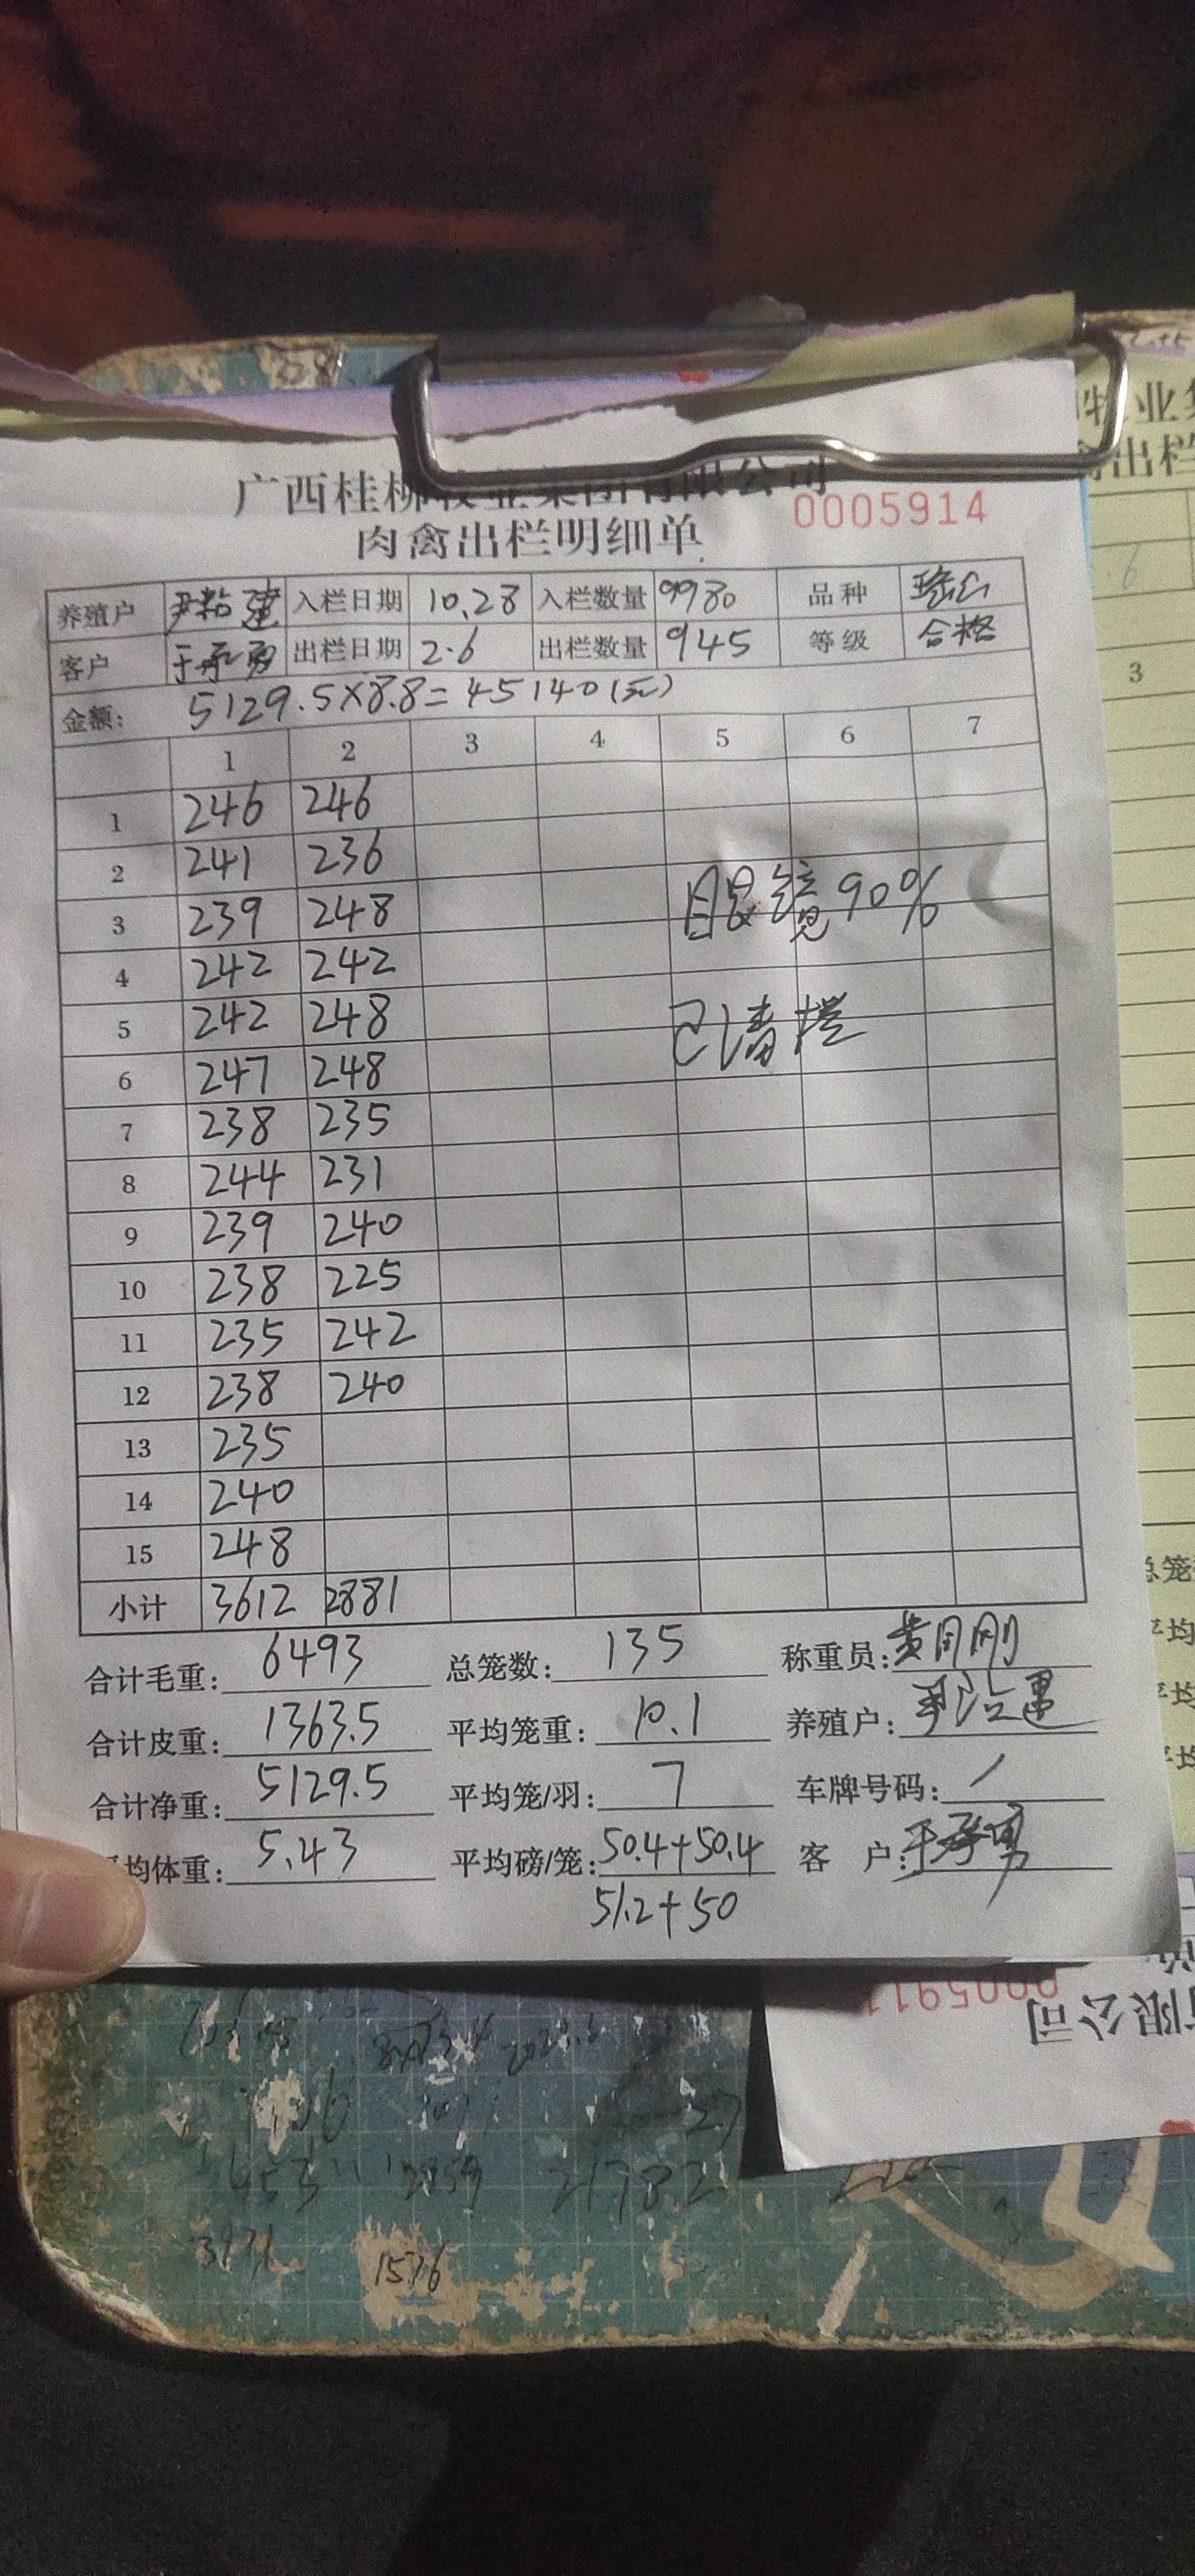 广西桂柳牧业集团有限公司
0005914
肉禽出栏明细单
养殖户 入栏日期 10.28 入栏数量 9980 品种
客户 出栏日期 2.6 出栏数量 945 等级 合格
金额: 5129.5×8.8=45140(元)
1 2 3 4 5 6 7
1 246 246
2 241 236
3 239 248
眼镜90%
4 242 242
5 242 248
已清栏
6 247 248
7 238 235
8 244 231
9 239 240
10 238 225
11 235 242
12 238 240
13 235
14 240
15 248
小计 3612 2881
合计毛重: 6493 总笼数: 135 称重员:
合计皮重: 1363.5 平均笼重: 10.1 养殖户:
合计净重: 5129.5 平均笼/羽: 7 车牌号码: /
均体重: 5.43 平均磅/笼: 50.4+50.4 客户:
51.2+50
牧业
禽出栏
3
总笼
平均
平均
平均
限公司
1576